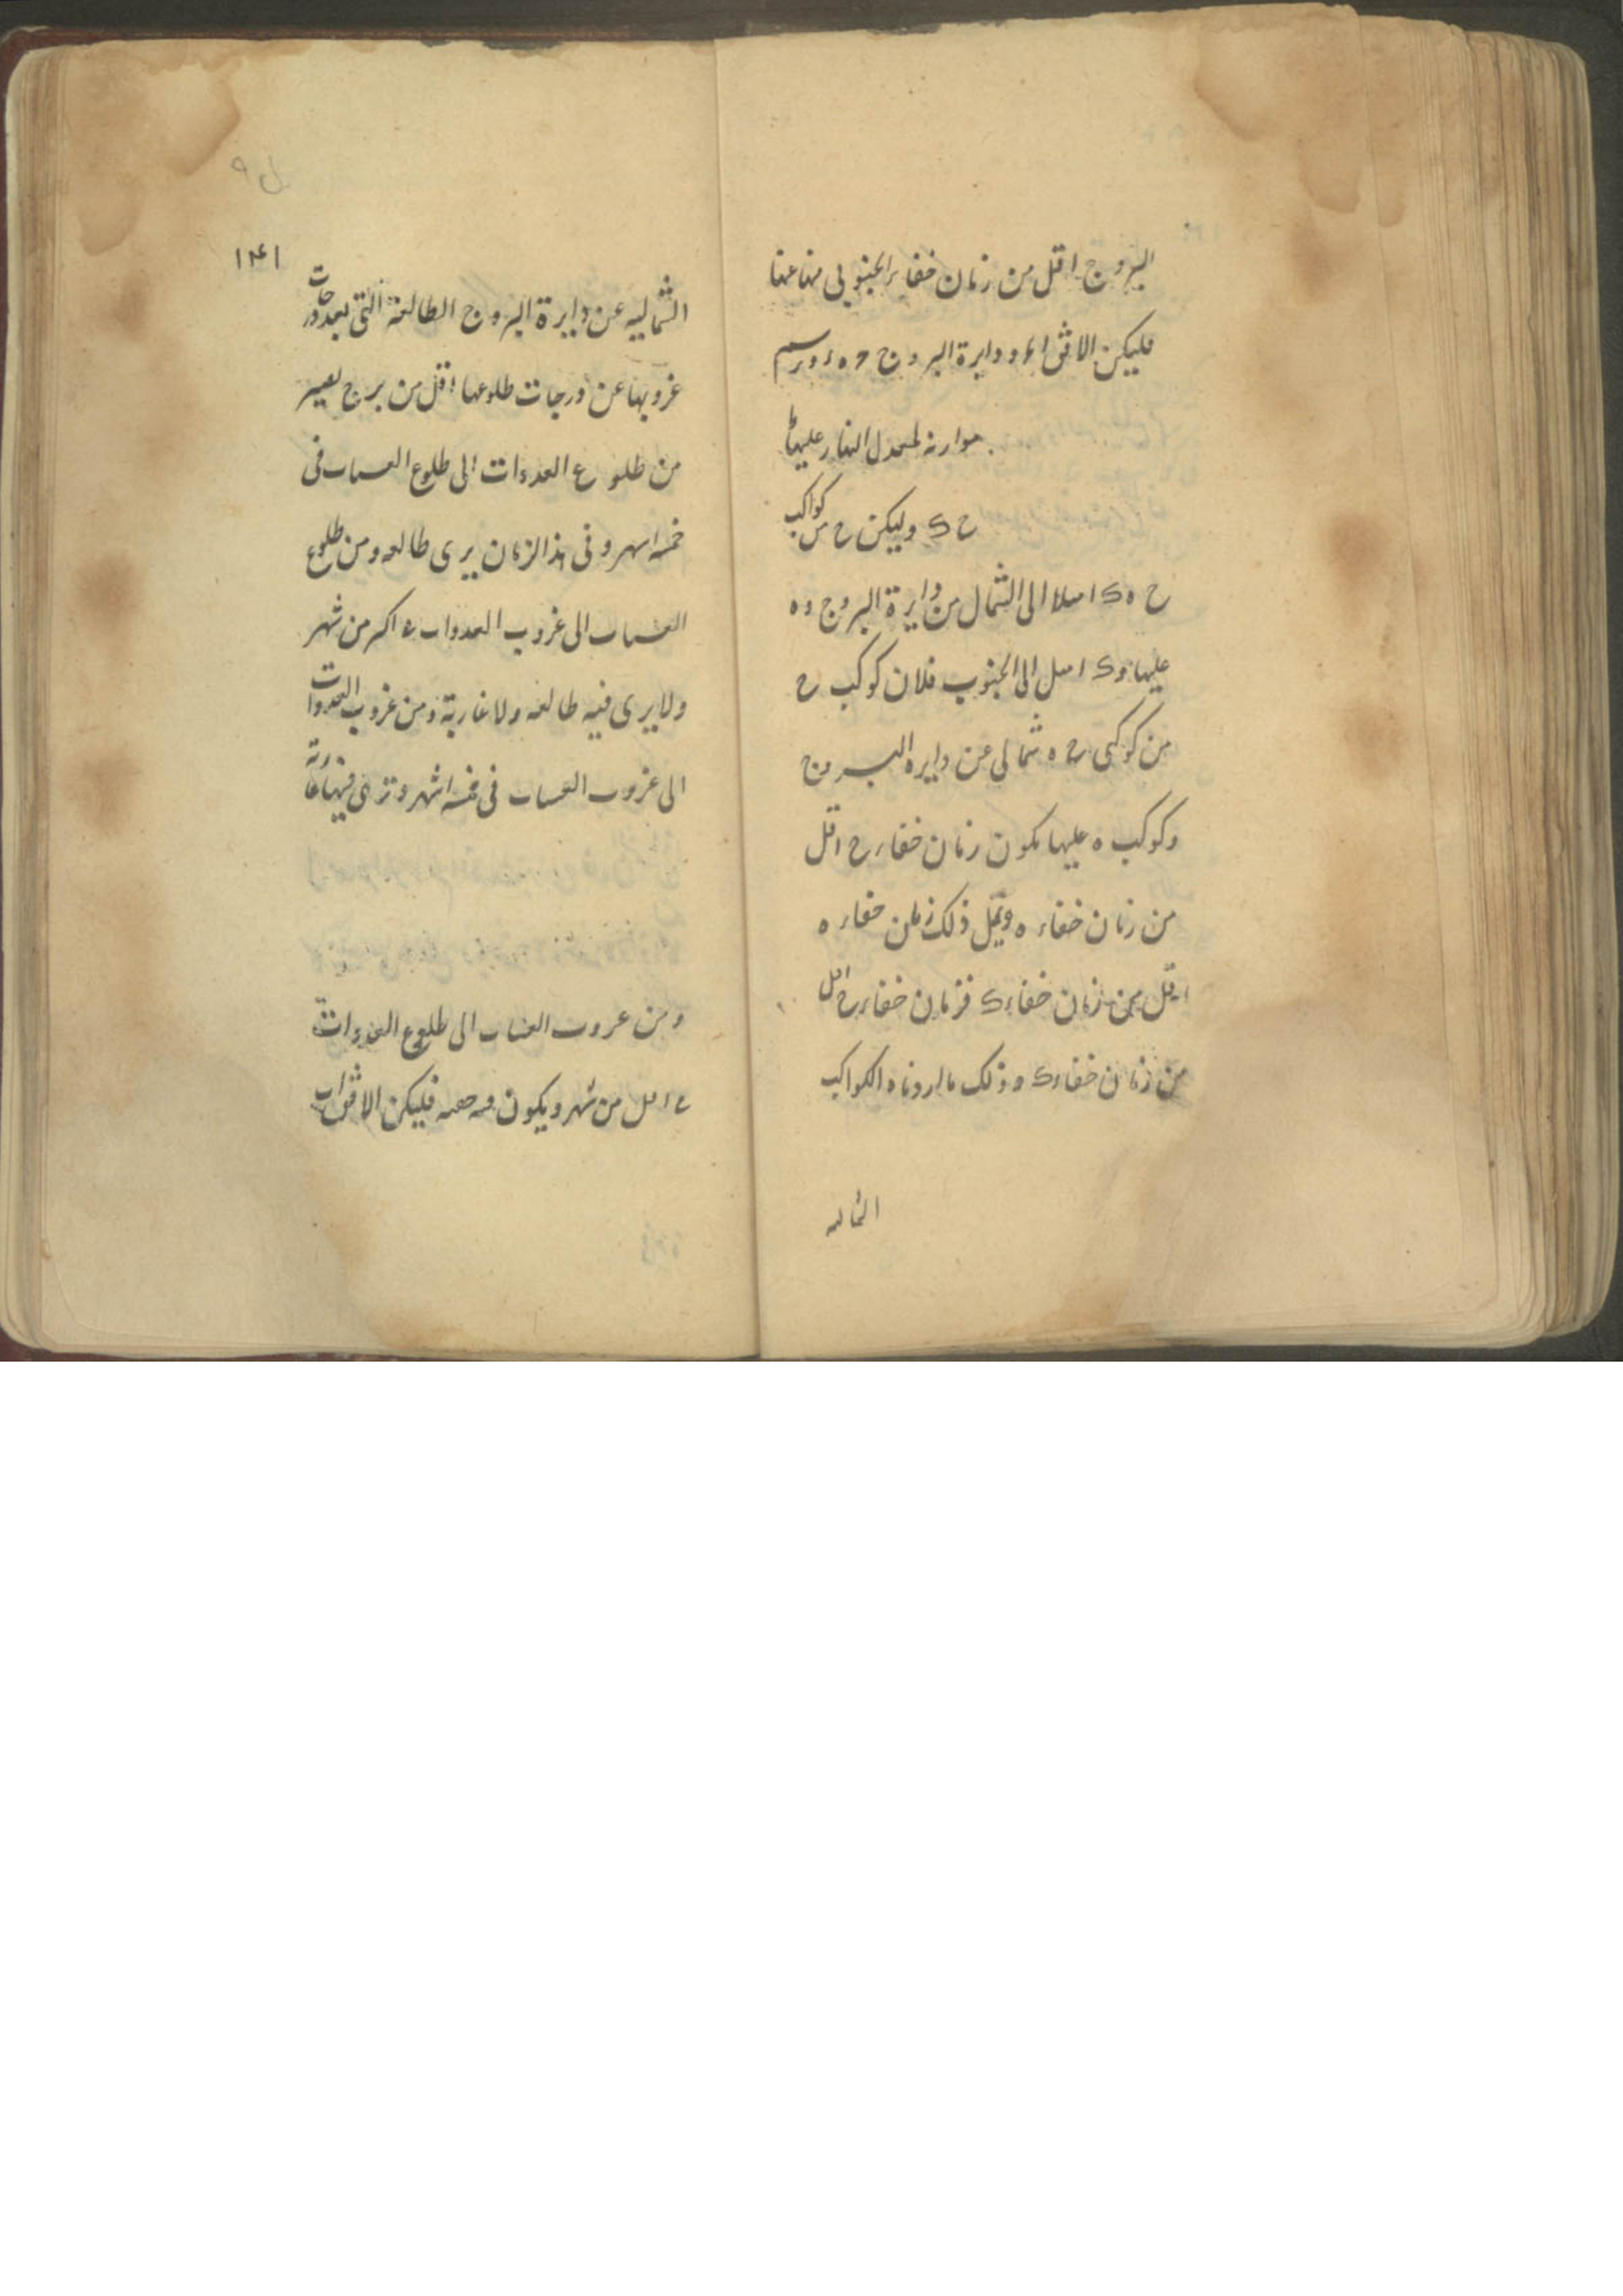 البروج اقل من زمان خفاء الجنوبى منها عنها
فليكن الافق ا ء و دايرة البروج ح ه ء ونرسم
موازنه لمعدل النهار عليها
ح ك وليكن ح من كواكب
ح ه ك اميلا الى الشمال من دايرة البروج و ه
عليها و ك اميل الى الجنوب فلان كوكب ح
من كوكبى ح ه شمالى عن دايره البروج
وكوكب ه عليها يكون زمان خفاء ح اقل
من زمان خفاء ه وبمثل ذلك زمان خفاء ه
اقل من زمان خفاء ك فزمان خفاء ح اقل
من زمان خفاء ك و ذلك ما اردناه الكواكب
الشماليه
ل ٩
١٤١
الشماليه عن دايرة البروج الطالعة التى بعد درجات
غروبها عن درجات طلوعها اقل من برج يصير
من طلوع الغدوات الى طلوع العشيات فى
خمسه اشهر و فى هذا الزمان يرى طالعه ومن طلوع
العشيات الى غروب الغدوات فى اكثر من شهر
ولا يرى فيه طالعه ولا غاربة ومن غروب الغدوات
الى غروب العشيات فى خمسه اشهر و ترى فيها غاربة
ومن غروب العشيات الى طلوع الغدوات
فى اقل من شهر و يكون فيه خفيه فليكن الافق اب